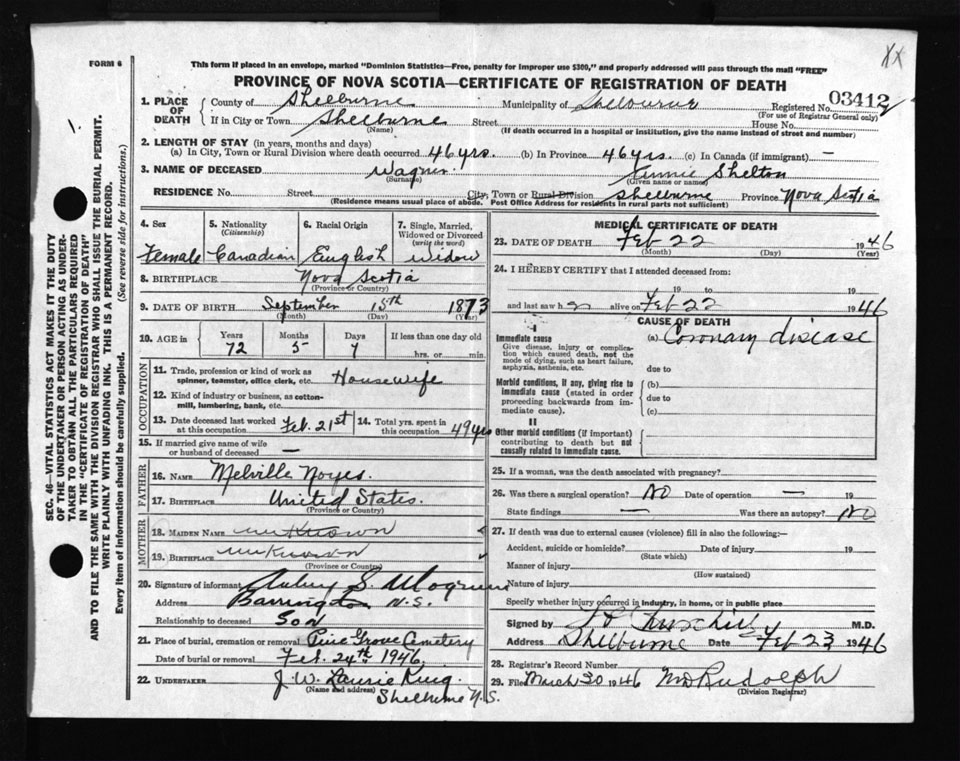 XX
FORM 6
This form if placed in an envelope, marked "Dominion Statistics—Free, penalty for improper use $300," and properly addressed will pass through the mail "FREE"
PROVINCE OF NOVA SCOTIA—CERTIFICATE OF REGISTRATION OF DEATH
1. PLACE OF DEATH { County of Shelburne Municipality of Shelburne Registered No. 03412
(For use of Registrar General only)
If in City or Town Shelburne Street House No.
(Name) (If death occurred in a hospital or institution, give the name instead of street and number)
2. LENGTH OF STAY (in years, months and days)
(a) In City, Town or Rural Division where death occurred 46 yrs. (b) In Province 46 yrs. (c) In Canada (if immigrant) —
3. NAME OF DECEASED Wagner Shelton
(Surname) (Given name or names)
RESIDENCE No. Street City, Town or Rural Division Shelburne Province Nova Scotia
(Residence means usual place of abode. Post Office Address for residents in rural parts not sufficient)
4. Sex Female
5. Nationality (Citizenship) Canadian
6. Racial Origin English
7. Single, Married, Widowed or Divorced (write the word) Widow
8. BIRTHPLACE Nova Scotia
(Province or Country)
9. DATE OF BIRTH September 15th 1873
(Month) (Day) (Year)
10. AGE in { Years 72 Months 5 Days 7 If less than one day old hrs. or min.
OCCUPATION
11. Trade, profession or kind of work as spinner, teamster, office clerk, etc. Housewife
12. Kind of industry or business, as cotton-mill, lumbering, bank, etc.
13. Date deceased last worked at this occupation Feb. 21st
14. Total yrs. spent in this occupation 49 yrs
15. If married give name of wife or husband of deceased —
FATHER
16. NAME Melville Noyes.
17. BIRTHPLACE United States.
(Province or Country)
MOTHER
18. MAIDEN NAME unknown
19. BIRTHPLACE unknown
(Province or Country)
20. Signature of informant S.
Address Barrington N.S.
Relationship to deceased Son
21. Place of burial, cremation or removal Pine Grove Cemetery
Date of burial or removal Feb. 24th 1946
22. UNDERTAKER J. W. Laurie King.
(Name and address) Shelburne N.S.
MEDICAL CERTIFICATE OF DEATH
23. DATE OF DEATH Feb 22 1946
(Month) (Day) (Year)
24. I HEREBY CERTIFY that I attended deceased from:
19 to 19
and last saw h alive on Feb 22 1946
CAUSE OF DEATH
I
Immediate cause
Give disease, injury or complication which caused death, not the mode of dying, such as heart failure, asphyxia, asthenia, etc.
(a) Coronary disease
due to
Morbid conditions, if any, giving rise to immediate cause (stated in order proceeding backwards from immediate cause).
(b)
due to
(c)
II
Other morbid conditions (if important) contributing to death but not causally related to immediate cause.
25. If a woman, was the death associated with pregnancy?
26. Was there a surgical operation? No Date of operation — 19
State findings — Was there an autopsy? No
27. If death was due to external causes (violence) fill in also the following:—
Accident, suicide or homicide? Date of injury 19
(State which)
Manner of injury
(How sustained)
Nature of injury
Specify whether injury occurred in industry, in home, or in public place
Signed by M.D.
Address Shelburne Date Feb 23 1946
28. Registrar's Record Number
29. Filed March 30 1946 Rudolph
(Division Registrar)
1.
SEC. 46—VITAL STATISTICS ACT MAKES IT THE DUTY OF THE UNDERTAKER OR PERSON ACTING AS UNDERTAKER TO OBTAIN ALL THE PARTICULARS REQUIRED IN THE "CERTIFICATE OF REGISTRATION OF DEATH" AND TO FILE THE SAME WITH THE DIVISION REGISTRAR WHO SHALL ISSUE THE BURIAL PERMIT.
WRITE PLAINLY WITH UNFADING INK. THIS IS A PERMANENT RECORD.
Every item of information should be carefully supplied. (See reverse side for instructions.)